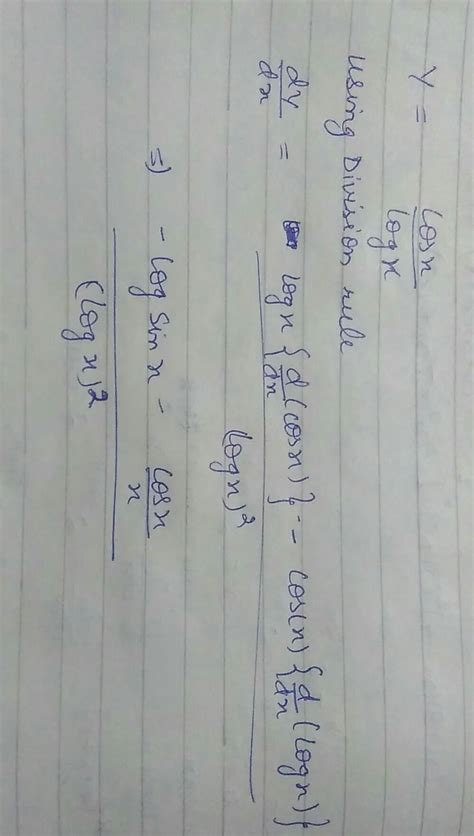 Y = cosx / logx
using Division rule
dy/dx = logx {d/dx (cosx)} - cos(x) {d/dx (logx)} / (logx)²
=) - log sinx - cosx/x / (logx)²